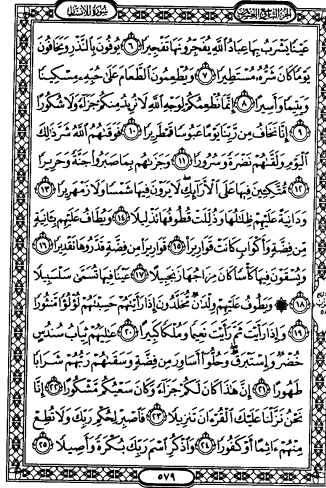 الجزء التاسع والعشرون سورة الإنسان
عَيْنًا يَشْرَبُ بِهَا عِبَادُ اللَّهِ يُفَجِّرُونَهَا تَفْجِيرًا ٦ يُوفُونَ بِالنَّذْرِ وَيَخَافُونَ
يَوْمًا كَانَ شَرُّهُ مُسْتَطِيرًا ٧ وَيُطْعِمُونَ الطَّعَامَ عَلَى حُبِّهِ مِسْكِينًا
وَيَتِيمًا وَأَسِيرًا ٨ إِنَّمَا نُطْعِمُكُمْ لِوَجْهِ اللَّهِ لَا نُرِيدُ مِنكُمْ جَزَاءً وَلَا شُكُورًا
٩ إِنَّا نَخَافُ مِن رَّبِّنَا يَوْمًا عَبُوسًا قَمْطَرِيرًا ١٠ فَوَقَاهُمُ اللَّهُ شَرَّ ذَلِكَ
الْيَوْمِ وَلَقَّاهُمْ نَضْرَةً وَسُرُورًا ١١ وَجَزَاهُم بِمَا صَبَرُوا جَنَّةً وَحَرِيرًا
١٢ مُّتَّكِئِينَ فِيهَا عَلَى الْأَرَائِكِ لَا يَرَوْنَ فِيهَا شَمْسًا وَلَا زَمْهَرِيرًا ١٣
وَدَانِيَةً عَلَيْهِمْ ظِلَالُهَا وَذُلِّلَتْ قُطُوفُهَا تَذْلِيلًا ١٤ وَيُطَافُ عَلَيْهِم بِآنِيَةٍ
مِّن فِضَّةٍ وَأَكْوَابٍ كَانَتْ قَوَارِيرَا ١٥ قَوَارِيرَا مِن فِضَّةٍ قَدَّرُوهَا تَقْدِيرًا ١٦
وَيُسْقَوْنَ فِيهَا كَأْسًا كَانَ مِزَاجُهَا زَنجَبِيلًا ١٧ عَيْنًا فِيهَا تُسَمَّى سَلْسَبِيلًا
١٨ ۞ وَيَطُوفُ عَلَيْهِمْ وِلْدَانٌ مُّخَلَّدُونَ إِذَا رَأَيْتَهُمْ حَسِبْتَهُمْ لُؤْلُؤًا مَّنثُورًا
١٩ وَإِذَا رَأَيْتَ ثَمَّ رَأَيْتَ نَعِيمًا وَمُلْكًا كَبِيرًا ٢٠ عَالِيَهُمْ ثِيَابُ سُندُسٍ
خُضْرٌ وَإِسْتَبْرَقٌ وَحُلُّوا أَسَاوِرَ مِن فِضَّةٍ وَسَقَاهُمْ رَبُّهُمْ شَرَابًا
طَهُورًا ٢١ إِنَّ هَذَا كَانَ لَكُمْ جَزَاءً وَكَانَ سَعْيُكُم مَّشْكُورًا ٢٢ إِنَّا
نَحْنُ نَزَّلْنَا عَلَيْكَ الْقُرْآنَ تَنزِيلًا ٢٣ فَاصْبِرْ لِحُكْمِ رَبِّكَ وَلَا تُطِعْ
مِنْهُمْ آثِمًا أَوْ كَفُورًا ٢٤ وَاذْكُرِ اسْمَ رَبِّكَ بُكْرَةً وَأَصِيلًا ٢٥
٥٧٩